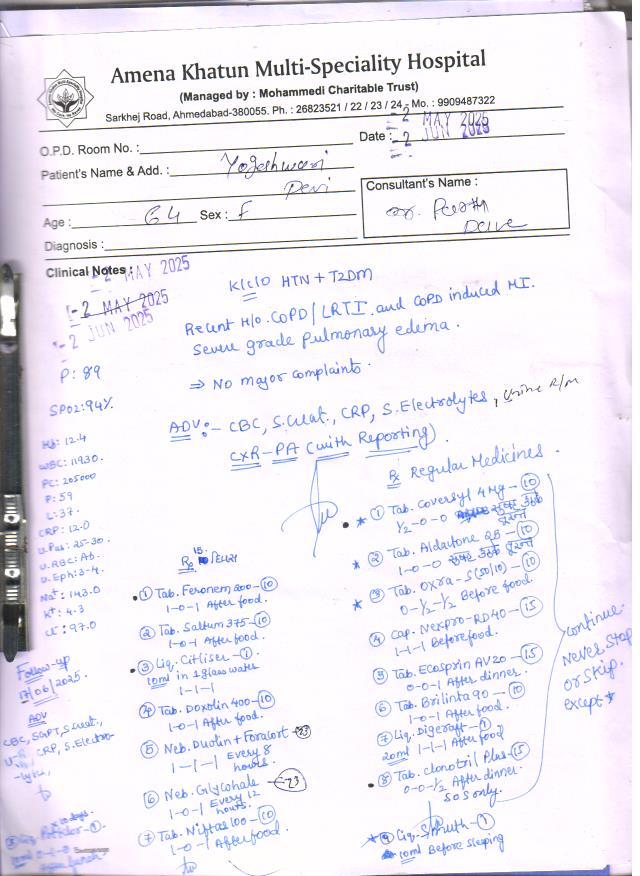 Amena Khatun Multi-Speciality Hospital
(Managed by : Mohammedi Charitable Trust)
Sarkhej Road, Ahmedabad-380055. Ph. : 26823521 / 22 / 23 / 24, Mo. : 9909487322
O.P.D. Room No. :
Date :
-2 MAY 2025
-2 JUN 2025
Patient's Name & Add. : Yogeshwari
Devi
Age : 64 Sex : F
Consultant's Name :
Dr. Parth
Dave
Diagnosis :
Clinical Notes :
-2 MAY 2025
-2 MAY 2025
-2 JUN 2025
K/c/o HTN + T2DM
Recent H/o. COPD/LRTI and COPD induced MI.
Severe grade Pulmonary edema.
⇒ No major complaints.
P: 89
SPO2: 94%
ADV:- CBC, S.Creat., CRP, S.Electrolytes, Urine R/M
CXR-PA (with Reporting)
Hb: 12.4
WBC: 11930
PC: 205000
P: 59
L: 37
CRP: 12.0
U.Pus: 25-30
U.RBC: Ab.
U.Eph: 3-4
Na+: 143.0
K+: 4.3
Cl-: 97.0
Follow-up
17/06/2025.
ADV
CBC, SGPT, S.creat.,
CRP, S.Electro-
lytes
Rx 15
① Tab. Feronem 200-⑩
1-0-1 After food.
② Tab. Saltum 375-⑩
1-0-1 After food.
③ Liq. Citliser-①
10ml in 1 glass water
1-1-1
④ Tab. Doxolin 400-⑩
1-0-1 After food.
⑤ Neb. Duolin + Foracort-㉓
1-1-1 Every 8
hours.
⑥ Neb. Glycohale-㉓
1-0-1 Every 12
hours.
⑦ Tab. Niftas 100-⑩
1-0-1 After food.
Rx Regular Medicines.
★ ① Tab. Coversyl 4mg-⑩
1/2-0-0
★ ② Tab. Aldactone 25-⑩
1-0-0
★ ③ Tab. Oxra-S (50/10)-⑩
0-1/2-1/2 Before food.
④ Cap. Nexpro-RD 40-⑮
1-1-1 Before food.
⑤ Tab. Ecosprin AV 20-⑮
0-0-1 After dinner.
⑥ Tab. Brilinta 90-⑩
1-0-1 After food.
⑦ Liq. Digeraft-①
20ml 1-1-1 After food
⑧ Tab. Clonotril Plus-⑮
0-0-1/2 After dinner.
SOS only.
★ ⑨ Liq. Smuth-①
10ml Before sleeping
continue.
Never Stop
or Skip.
except ★